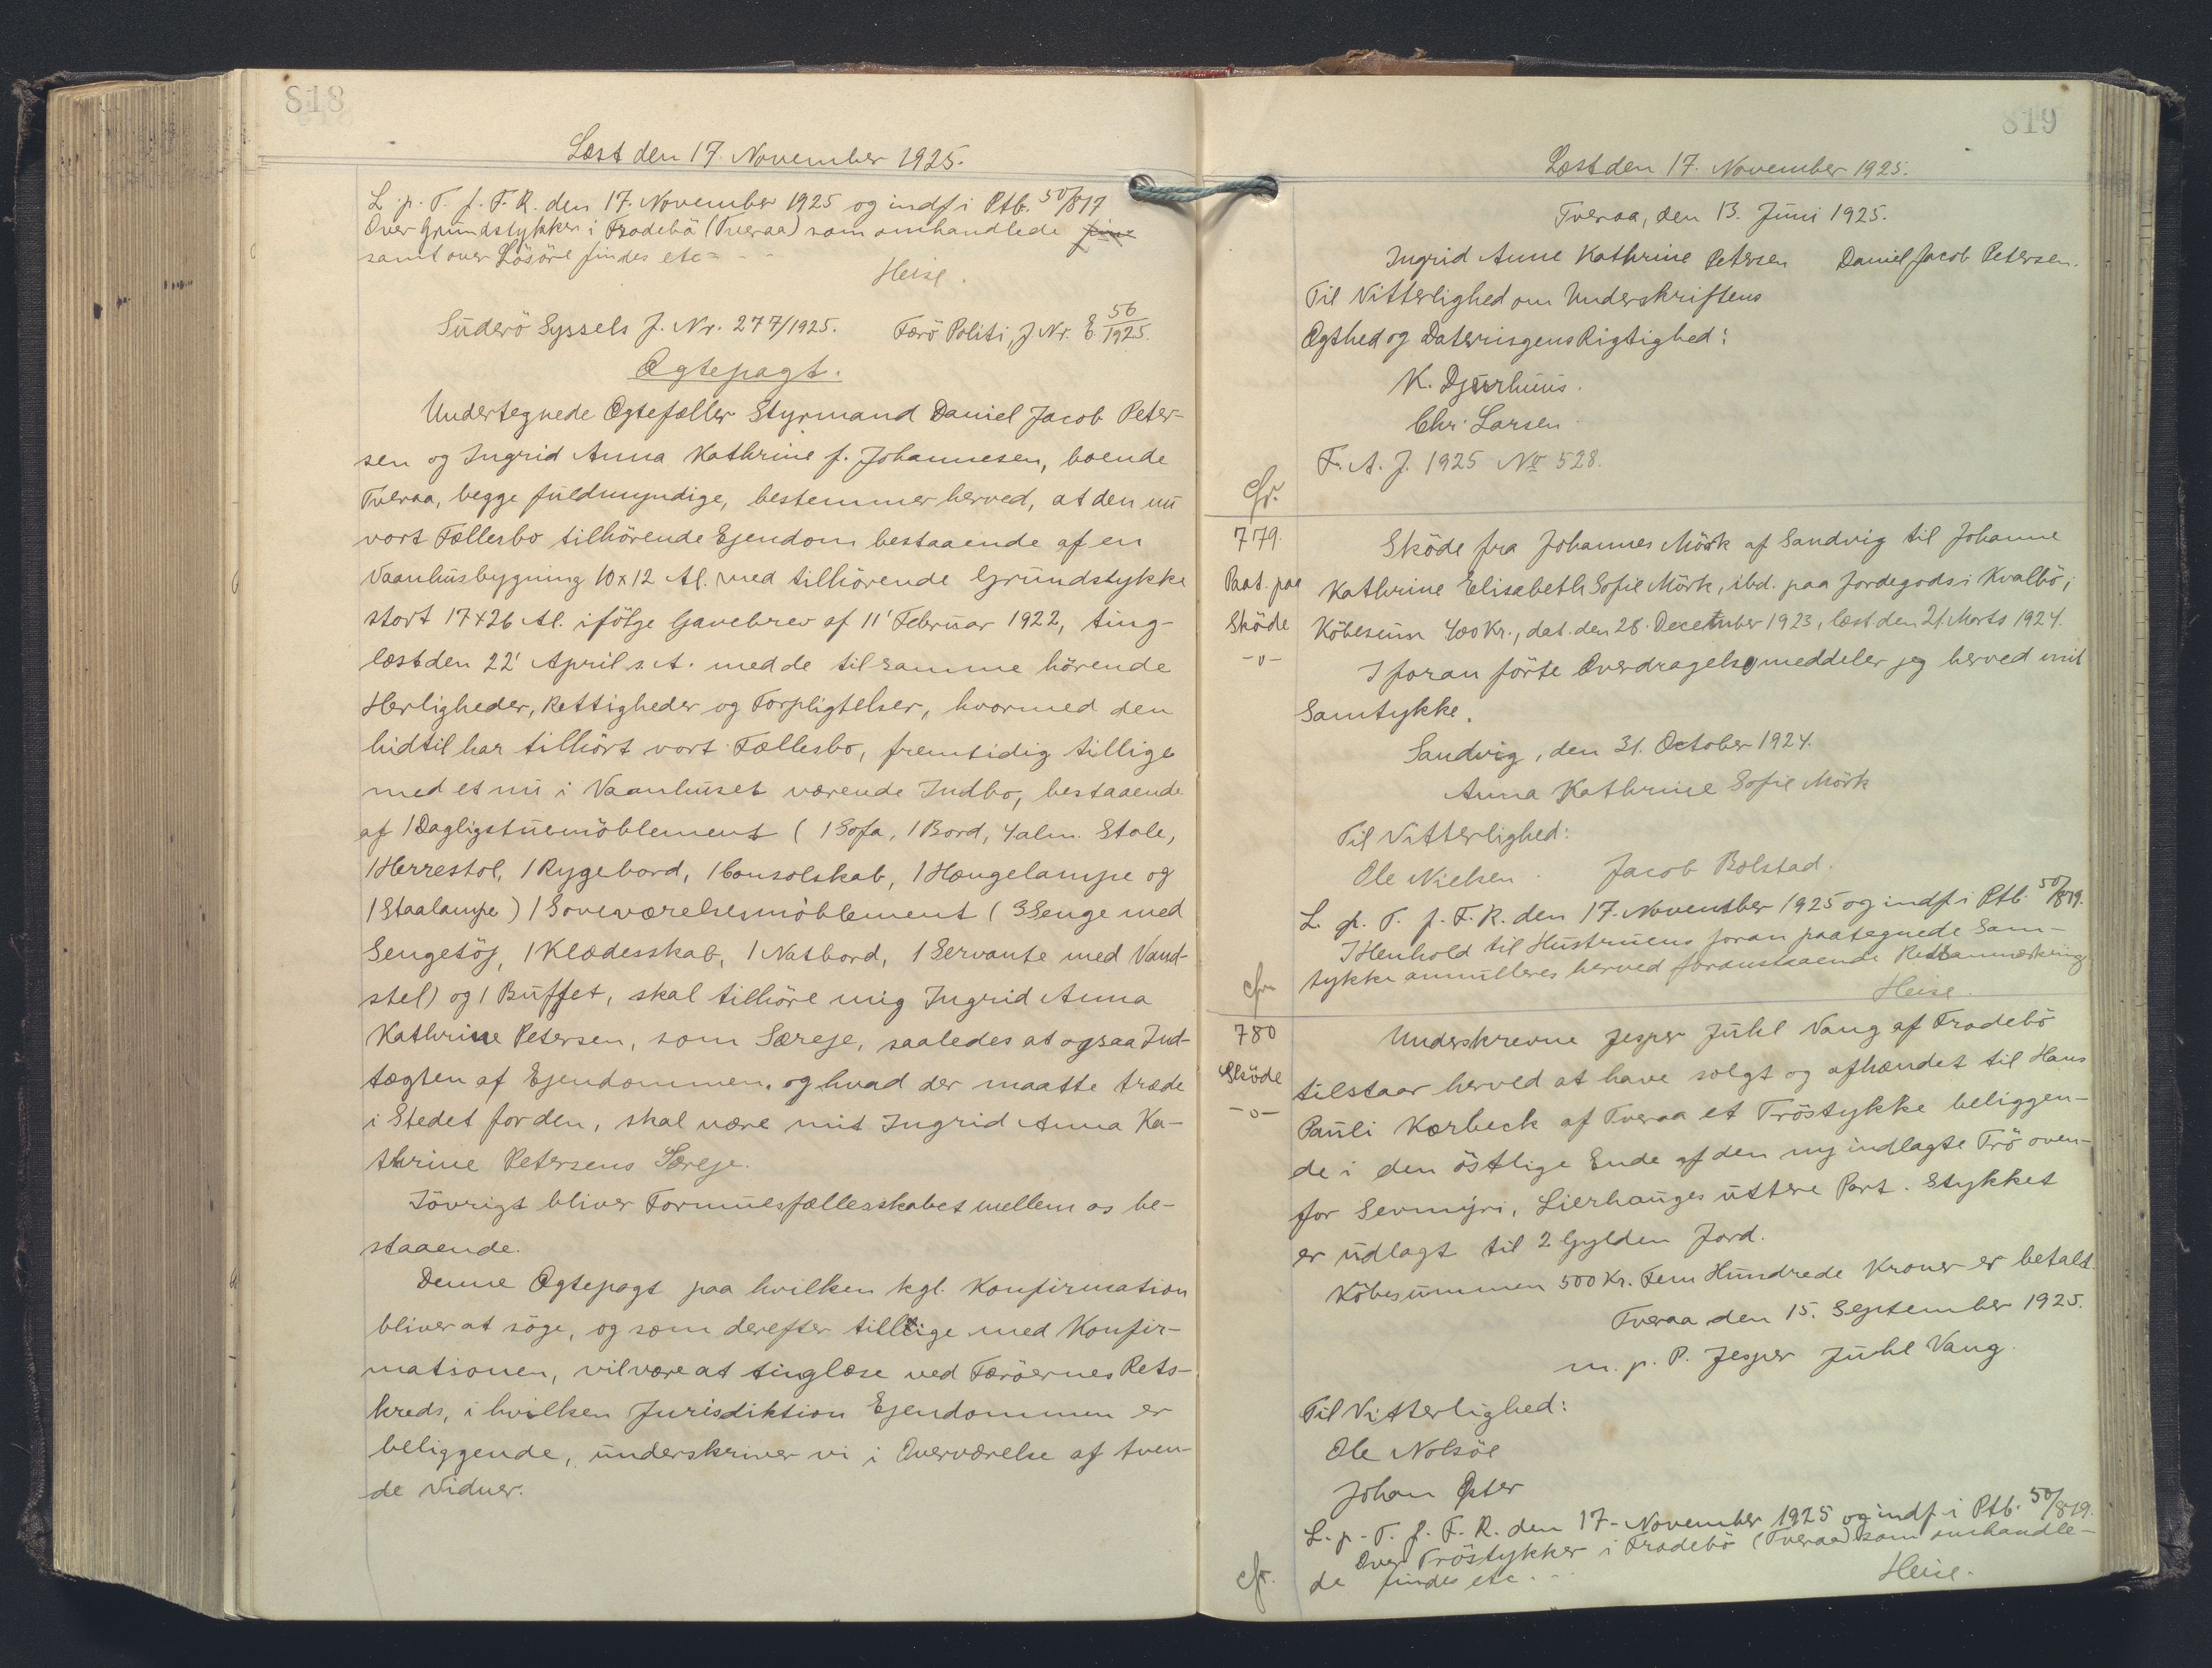 818
Læst den 17. November 1925.
L. p. T. f. F. R. den 17. November 1925 og indf i Ptb. 50/817
Over Grundstykker i Frodebö (Tveraa) som omhandlede
samt over Lösöre findes etc - - -
Heise.
Suderö Syssels J. Nr. 277/1925. Færö Politi, J Nr. E. 56/1925.
Ægtepagt.
Undertegnede Ægtefæller Styrmand Daniel Jacob Peter-
sen og Ingrid Anna Kathrine f. Johannesen, boende
Tveraa, begge fuldmyndige, bestemmer herved, at den nu
vort Fællesbo tilhörende Ejendom bestaaende af en
Vaanhusbygning 10x12 Al. med tilhörende Grundstykke
stort 17x26 Al. ifölge Gavebrev af 11' Februar 1922, ting-
læst den 22' April s. A. med de til samme hörende
Herligheder, Rettigheder og Forpligtelser, hvormed den
hidtil har tilhört vort Fællesbo, fremtidig tillige
med et nu i Vaanhuset værende Indbo, bestaaende
af 1 Dagligstuemöblement (1 Sofa, 1 Bord, 4 alm. Stole,
1 Herrestol, 1 Rygebord, 1 Consolskab, 1 Hængelampe og
1 Staalampe) 1 Soveværelsesmöblement (3 Senge med
Sengetöj, 1 Klædesskab, 1 Natbord, 1 Servante med Vand-
stel) og 1 Buffet, skal tilhöre mig Ingrid Anna
Kathrine Petersen, som Særeje, saaledes at ogsaa Ind-
tægten af Ejendommen, og hvad der maatte træde
i Stedet for den, skal være mit Ingrid Anna Ka-
thrine Petersens Særeje.
Iövrigt bliver Formuesfællesskabet mellem os be-
staaende.
Denne Ægtepagt paa hvilken kgl. Konfirmation
bliver at söge, og som derefter tillige med Konfir-
mationen, vil være at tinglæse ved Færöernes Rets-
kreds, i hvilken Jurisdiktion Ejendommen er
beliggende, underskriver vi i Overværelse af tven-
de Vidner.
819
Læst den 17. November 1925.
Tveraa, den 13. Juni 1925.
Ingrid Anne Kathrine Petersen Daniel Jacob Petersen.
Til Vitterlighed om Underskriftens
Ægthed og Dateringens Rigtighed:
K. Djurhuus.
Chr. Larsen.
F. A. J. 1925 No 528.
cfr.
779.
Paat. paa
Sköde
-o-
Sköde fra Johannes Mörk af Sandvig til Johanne
Kathrine Elisabeth Sofie Mörk, ibd. paa Jordegods i Kvalbö;
Köbesum 400 Kr., dat. den 28. December 1923, læst den 21. Marts 1924.
I foran förte Overdragelse meddeler jeg herved mit
Samtykke.
Sandvig, den 31. October 1924.
Anna Kathrine Sofie Mörk
Til Vitterlighed:
Ole Nielsen. Jacob Bolstad.
L. p. T. f. F. R. den 17. November 1925 og indf i Ptb. 50/819.
I Henhold til Hustruens foran paategnede Sam-
tykke annulleres herved foranstaaende Retsanmærkning
Heise.
cfr
780
Sköde
-o-
Underskrevne Jesper Juhl Vang af Frodebö
tilstaar herved at have solgt og afhændet til Hans
Pauli Kærbeck af Tveraa et Tröstykke beliggen-
de i den östlige Ende af den ny indlagte Trö oven-
for Sevmýri, Lierhauges uttere Part. Stykket
er udlagt til 2 Gylden Jord.
Köbesummen 500 Kr. Fem Hundrede Kroner er betalt.
Tveraa den 15. September 1925.
m. p. P. Jesper Juhl Vang.
Til Vitterlighed:
Ole Nolsöe
Johan Øster
L. p. T. f. F. R. den 17. November 1925 og indf i Ptb. 50/819.
Over Tröstykker i Frodebö (Tveraa) som omhandle-
de findes etc. - -
Heise.
cfr.